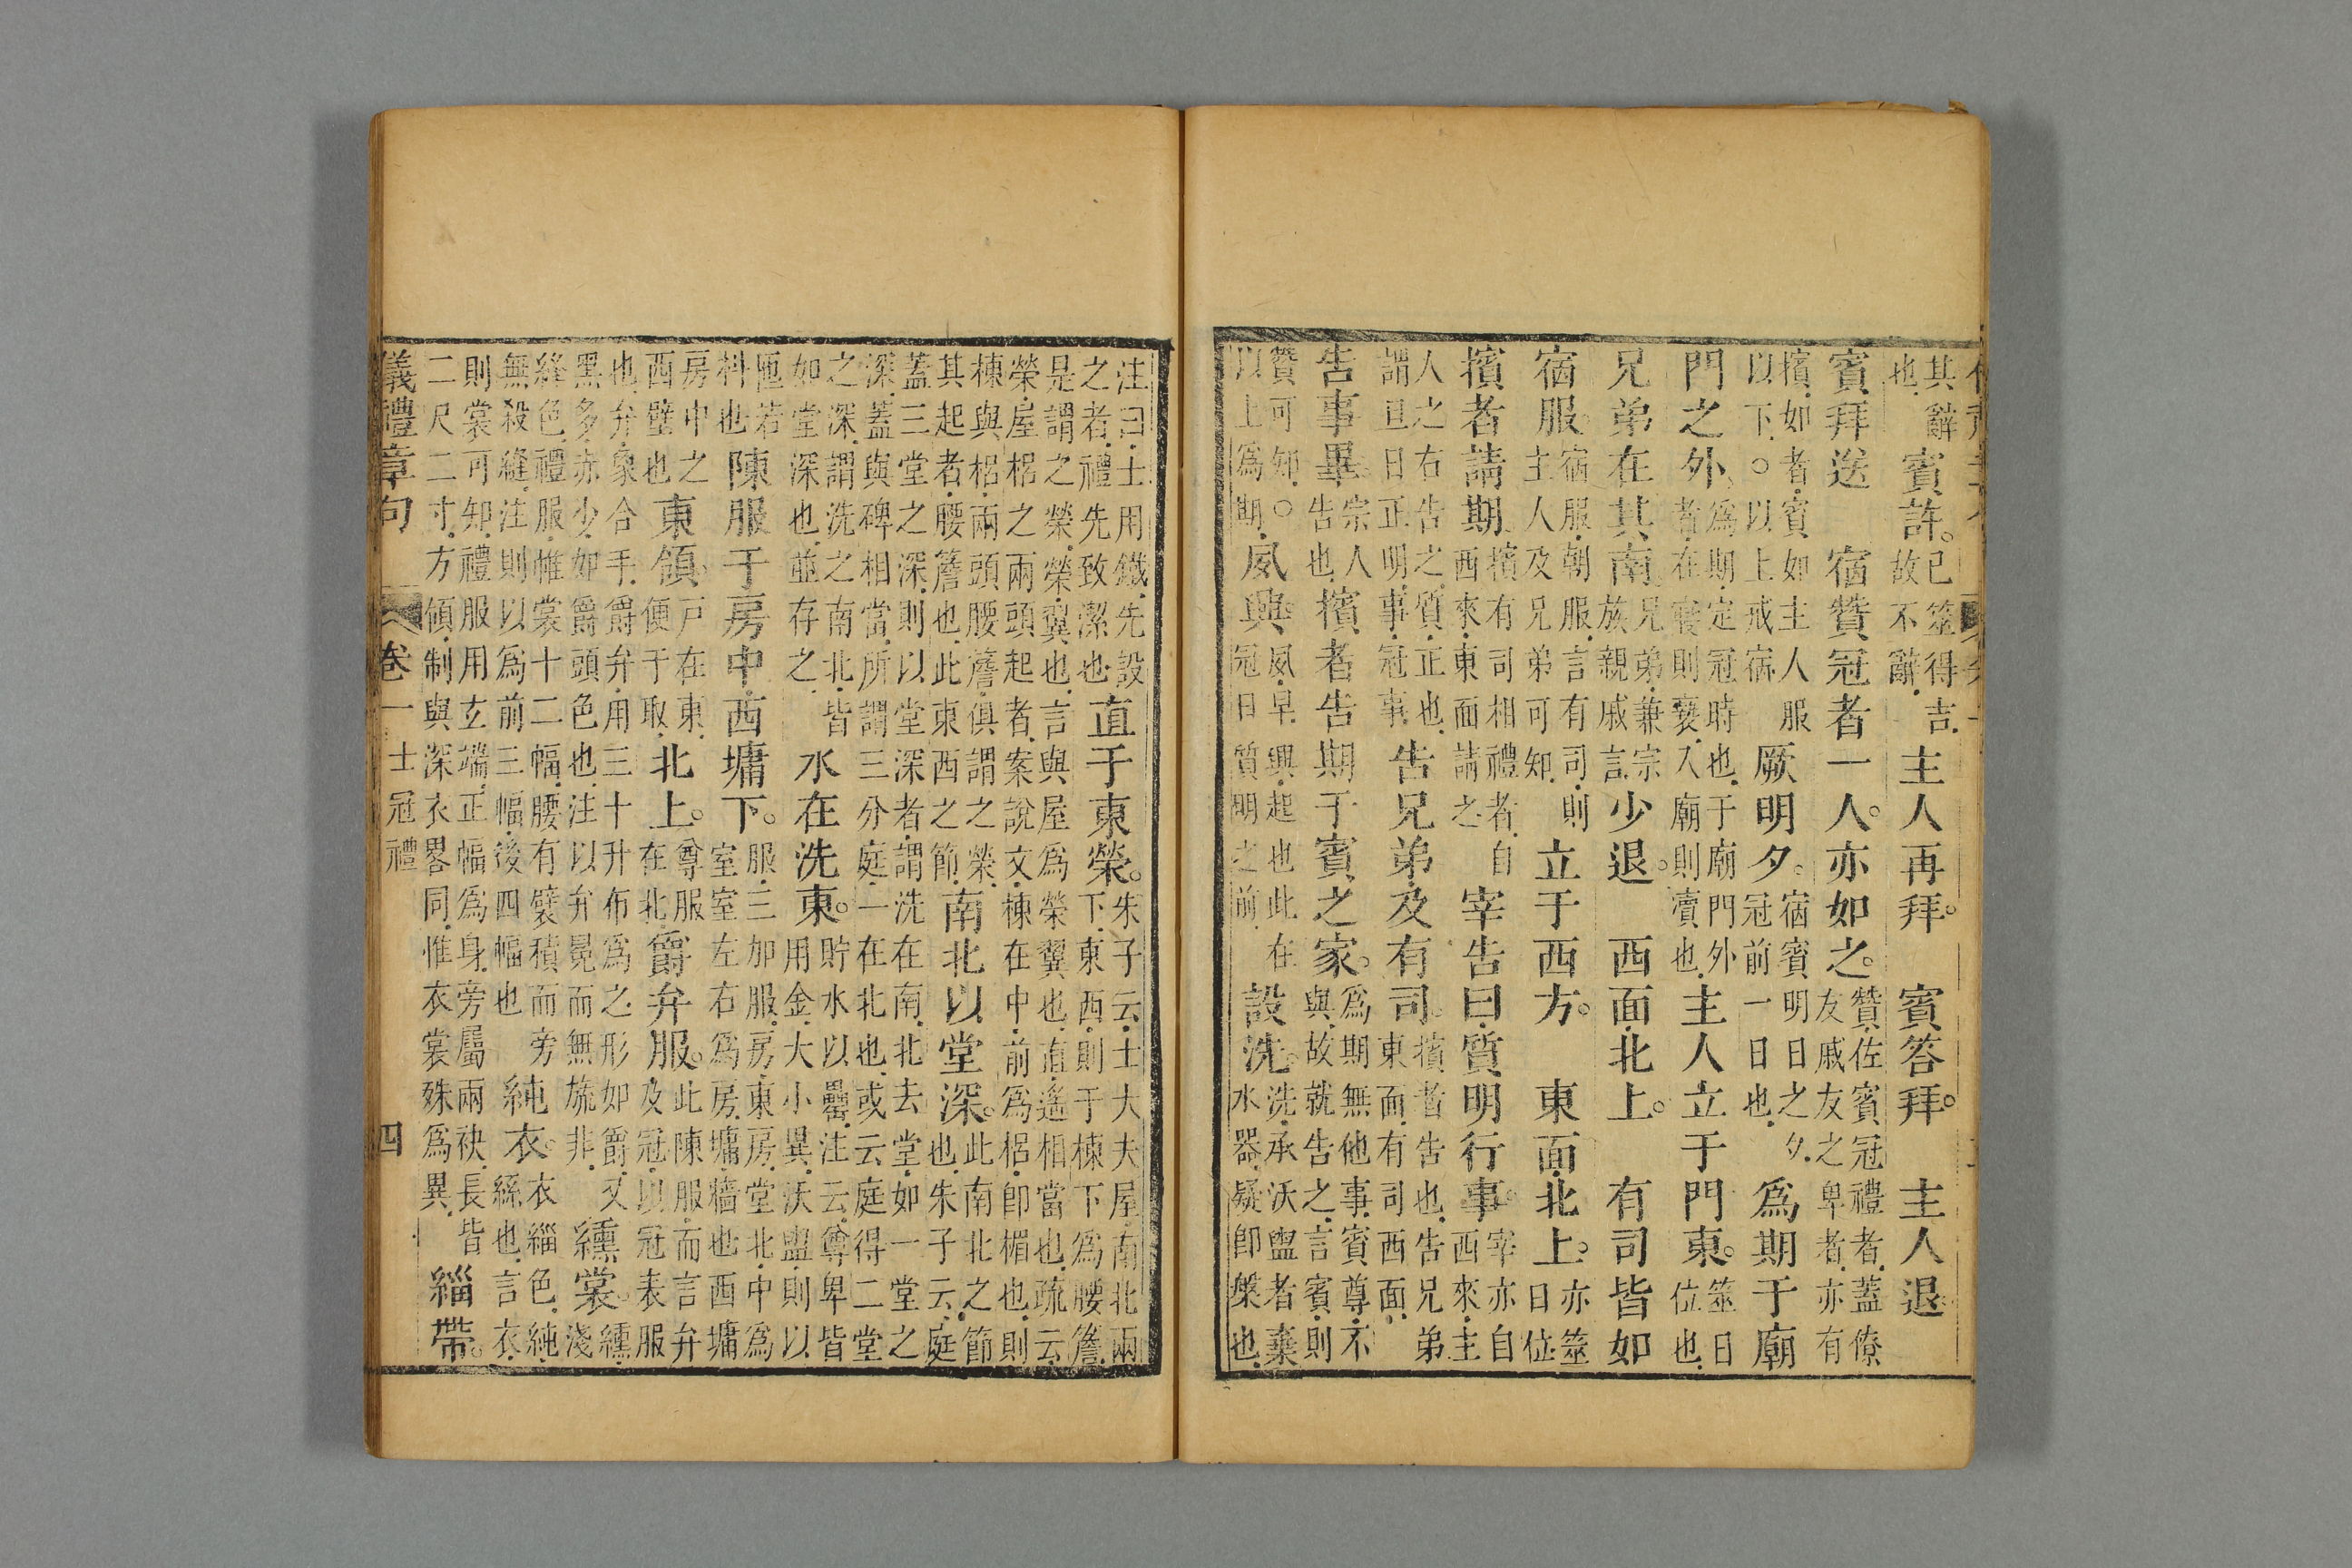 其辭也.賓許。已筮得吉.故不辭.主人再拜。賓答拜。主人退
賓拜送 宿贊冠者一人。亦如之。贊.佐賓冠禮者.蓋僚友戚友之卑者.亦有
擯.如者.賓如主人服以下。以上戒宿 厥明夕。宿賓明日之夕.冠前一日也.爲期于廟
門之外、爲期.定冠時也.于廟門外者.在寢則褻.入廟則瀆也.主人立于門東。筮日位也.
兄弟在其南、兄弟.兼宗族親戚言.少退。西面北上。有司皆如
宿服。宿服.朝服.言有司.則主人及兄弟可知.立于西方。東面北上。亦筮日位
擯者請期、擯有司相禮者.自西來東面請之.宰告曰質明行事。宰亦自西來.主
人之右告之.質.正也.謂旦日正明.事.冠事.告兄弟.及有司。擯者告也.告兄弟東面.有司西面.
告事畢。宗人告也.擯者告期于賓之家。爲期無他事.賓尊.不與.故就告之.言賓.則
贊可知。以上爲期.夙興。夙.早.興.起也此在冠日質明之前.設洗。洗.承沃盥者棄水器.疑即槃也.
注曰.士用鐵.先設之者.禮先致潔也 直于東榮。朱子云.士大夫屋.南北兩下.東西.則于棟下爲腰簷.
是謂之榮.榮.翼也.言與屋爲榮翼也.直.遙相當也.疏云.榮.屋梠之兩頭起者.案說文.棟在中.前爲梠.卽楣也.則
棟與梠兩頭腰簷.俱謂之榮.其起者.腰簷也.此東西之節.南北以堂深。此南北之節也.朱子云.庭
蓋三堂之深.則以堂深者.謂洗在南北去堂.如一堂之深.蓋與碑相當.所謂三分庭一在北也.或云庭得二堂
之深.謂洗之南北.皆如堂深也.並存之.水在洗東。貯水以罍.注云.尊卑皆用金.大小異.沃盥.則以
匜若枓也 陳服于房中.西墉下。服.三加服.房.東房.堂北中爲室.室左右爲房.墉.牆也.西墉
房中之西壁也 東領。戶在東.便于取.北上。尊服在北 爵弁服。此陳服.而言弁及冠.以冠表服
也.弁.象合手.爵弁.用三十升布爲之.形如爵.又黑多.赤少.如爵頭色也.注以弁冕而無旒.非.纁裳。纁.淺
絳色.禮服.帷裳十二幅.腰有襞積而旁無殺縫.注.則以爲前三幅.後四幅也 純衣。衣.緇色.純絲也.言衣.
則裳可知.禮服用玄端.正幅爲身.旁屬兩袂.長皆二尺二寸.方傾.制與深衣畧同.惟衣裳殊爲異.緇帶。
儀禮章句 卷一 士冠禮 四